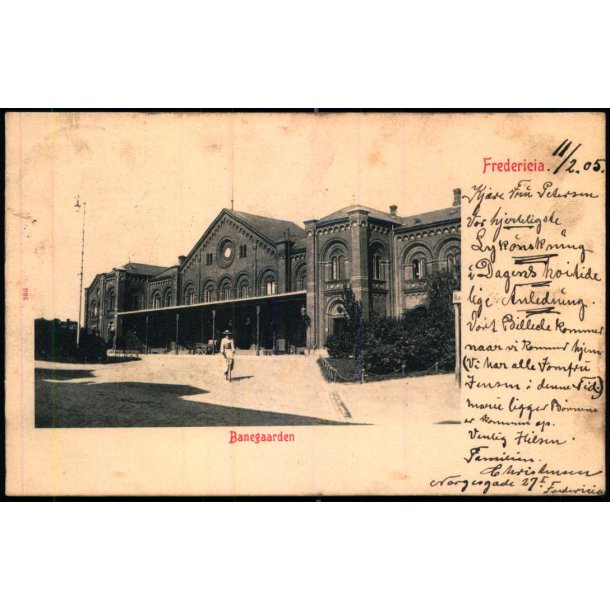 Fredericia. 11/2.05.
Kjære Fru Petersen
Vor hjerteligste
Lykønskning
i Dagens høitide
lige Anledning.
Vort Billede kommer
naar vi kommer hjem
(Vi har alle Jomfru
Jensen i denne Tid.)
Marie ligger Børnene
er kommen op.
Venlig Hilsen
Familien
Christensen
Norgesgade 27 Fredericia
Banegaarden
986